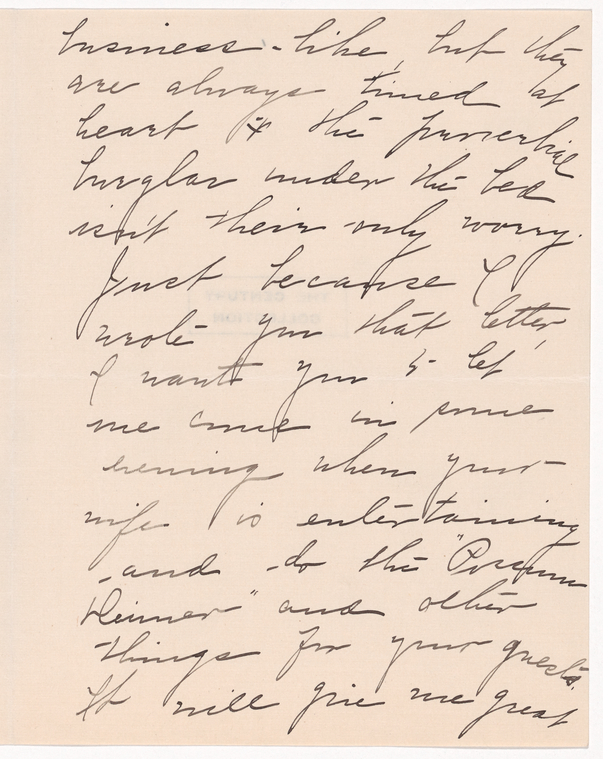 business-like, but they
are always timed at
heart & the proverbial
burglar under the bed
isn't their only worry.
Just because I
wrote you that letter,
I want you to let
me come in some
evening when your
wife is entertaining
and do the "Possum
Heimer" and other
things for your guests.
It will give me great
THE CENTURY
COLLECTION